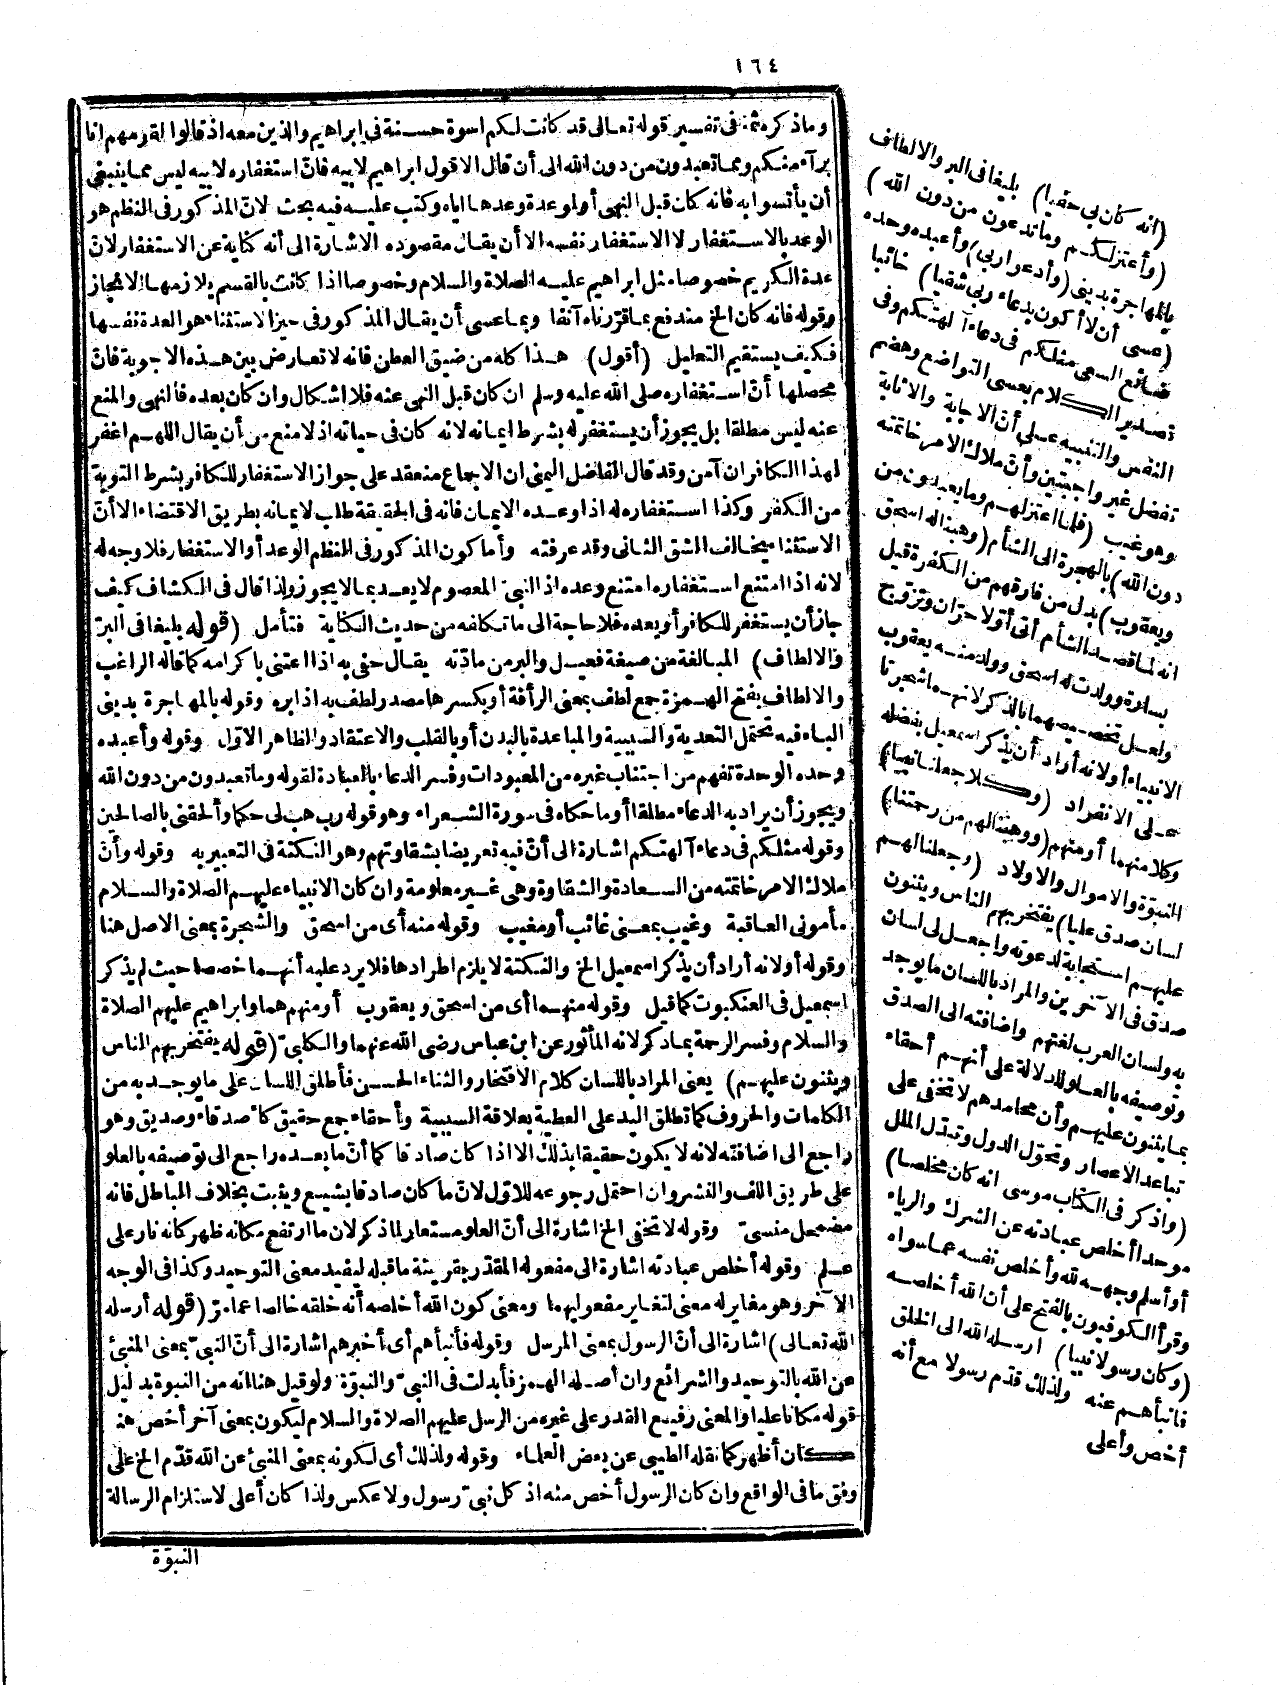 ١٦٤
وما ذكره ثمة في تفسير قوله تعالى قد كانت لكم اسوة حسنة في ابراهيم والذين معه اذ قالوا لقومهم انا
برآء منكم ومما تعبدون من دون الله الى أن قال الا قول ابراهيم لابيه فان استغفاره لابيه ليس مما ينبغي
أن يأتسوا به فانه كان قبل النهي أو لموعدة وعدها اياه وكتب عليه فيه بحث لان المذكور في النظم هو
الوعد بالاستغفار لا الاستغفار نفسه الا أن يقال مقصوده الاشارة الى أنه كناية عن الاستغفار لان
عدة الكريم خصوصا مثل ابراهيم عليه الصلاة والسلام وخصوصا اذا كانت بالقسم يلازمها الانجاز
وقوله فانه كان الخ مندفع بما قررناه آنفا وبما عسى أن يقال المذكور في حيز الاستثناء هو العدة نفسها
فكيف يستقيم التعليل (أقول) هذا كله من ضيق العطن فانه لا تعارض بين هذه الاجوبة فان
محصلها أن استغفاره صلى الله عليه وسلم ان كان قبل النهي عنه فلا اشكال وان كان بعده فالنهي والمنع
عنه ليس مطلقا بل يجوز أن يستغفر له بشرط ايمانه لانه كان في حياته اذ لا منع من أن يقال اللهم اغفر
لهذا الكافر ان آمن وقد قال الفاضل اليمني ان الاجماع منعقد على جواز الاستغفار للكافر بشرط التوبة
من الكفر وكذا استغفاره له اذا وعده الايمان فانه في الحقيقة طلب لايمانه بطريق الاقتضاء الا أن
الاستثناء يخالف الشق الثاني وقد عرفته وأما كون المذكور في النظم الوعد أو الاستغفار فلا وجه له
لانه اذا امتنع استغفاره امتنع وعده اذ النبي المعصوم لا يعد بما لا يجوز ولذا قال في الكشاف كيف
جاز أن يستغفر للكافر أو يعده فلا حاجة الى ما تكلفه من حديث الكناية فتأمل (قوله بليغا في البر
والالطاف) المبالغة من صيغة فعيل والبر من مادته يقال حفي به اذا اعتنى باكرامه كما قاله الراغب
والالطاف بفتح الهمزة جمع لطف بمعنى الرأفة أو بكسرها مصدر لطف به اذا بره وقوله بالمهاجرة بديني
الباء فيه تحتمل التعدية والسببية والمباعدة بالبدن أو بالقلب والاعتقاد والظاهر الاول وقوله وأعبده
وحده الوحدة تفهم من اجتناب غيره من المعبودات وفسر الدعاء بالعبادة لقوله وما تعبدون من دون الله
ويجوز أن يراد به الدعاء مطلقا أو ما حكاه في سورة الشعراء وهو قوله رب هب لي حكما وألحقني بالصالحين
وقوله مثلكم في دعاء آلهتكم اشارة الى أن فيه تعريضا بشقاوتهم وهو النكتة في التعبير به وقوله وأن
ملاك الامر خاتمته من السعادة والشقاوة وهي غير معلومة وان كان الانبياء عليهم الصلاة والسلام
مأموني العاقبة وغيب بمعنى غائب أو مغيب وقوله منه أي من اسحق والشجرة بمعنى الاصل هنا
وقوله أو لانه أراد أن يذكر اسمعيل الخ والنكتة لا يلزم اطرادها فلا يرد عليه أنهما خصصا حيث لم يذكر
اسمعيل في العنكبوت كما قيل وقوله منهما أي من اسحق ويعقوب أو منهم هما وابراهيم عليهم الصلاة
والسلام وفسر الرحمة بما ذكر لانه المأثور عن ابن عباس رضي الله عنهما والكلبي (قوله يفتخر بهم الناس
ويثنون عليهم) يعني المراد باللسان كلام الافتخار والثناء الحسن فأطلق اللسان على ما يوجد به من
الكلمات والحروف كما تطلق اليد على العطية بعلاقة السببية وأحقاء جمع حقيق كأصدقاء وصديق وهو
راجع الى اضافته لانه لا يكون حقيقا بذلك الا اذا كان صادقا كما أن ما بعده راجع الى توصيفه بالعلو
على طريق اللف والنشر وان احتمل رجوعه للاول لان ما كان صادقا يشيع ويثبت بخلاف الباطل فانه
مضمحل منسي وقوله لا تخفى الخ اشارة الى أن العلو مستعار لما ذكر لان ما ارتفع مكانه ظهر كانه نار على
علم وقوله أخلص عبادته اشارة الى مفعوله المقدر بقرينة ما قبله ليفيد معنى التوحيد وكذا في الوجه
الآخر وهو مغاير له معنى لتغاير مفعوليهما ومعنى كون الله أخلصه أنه خلقه خالصا عما مر (قوله أرسله
الله تعالى) اشارة الى أن الرسول بمعنى المرسل وقوله فأنبأهم أي أخبرهم اشارة الى أن النبي بمعنى المنبئ
عن الله بالتوحيد والشرائع وان أصله الهمز فأبدلت في النبي والنبوة ولو قيل هنا انه من النبوة بدليل
قوله مكانا عليا والمعنى رفيع القدر على غيره من الرسل عليهم الصلاة والسلام ليكون بمعنى آخر أخص منه
كان أظهر كما نقله الطيبي عن بعض العلماء وقوله ولذلك أي لكونه بمعنى المنبئ عن الله قدم الخ على
وفق ما في الواقع وان كان الرسول أخص منه اذ كل نبي رسول ولا عكس ولذا كان أعلى لاستلزام الرسالة
النبوة
(انه كان بي حفيا) بليغا في البر والالطاف
(وأعتزلكم وما تدعون من دون الله)
بالمهاجرة بديني (وأدعوا ربي) وأعبده وحده
(عسى أن لا أكون بدعاء ربي شقيا) خائبا
ضائع السعي مثلكم في دعاء آلهتكم وفي
تصدير الكلام بعسى التواضع وهضم
النفس والتنبيه على أن الاجابة والاثابة
تفضل غير واجبتين وأن ملاك الامر خاتمته
وهو غيب (فلما اعتزلهم وما يعبدون من
دون الله) بالهجرة الى الشأم (وهبنا له اسحق
ويعقوب) بدل من فارقهم من الكفرة قيل
انه لما قصد الشأم أتى أولا حران وتزوج
بسارة وولدت له اسحق وولد منه يعقوب
ولعل تخصيصهما بالذكر لانهما شجرتا
الانبياء أو لانه أراد أن يذكر اسمعيل بفضله
على الانفراد (وكلا جعلنا نبيا)
وكلا منهما أو منهم (ووهبنا لهم من رحمتنا)
النبوة والاموال والاولاد (وجعلنا لهم
لسان صدق عليا) يفتخر بهم الناس ويثنون
عليهم استجابة لدعوته واجعل لي لسان
صدق في الآخرين والمراد باللسان ما يوجد
به ولسان العرب لغتهم واضافته الى الصدق
وتوصيفه بالعلو للدلالة على أنهم أحقاء
بما يثنون عليهم وأن محامدهم لا تخفى على
تباعد الاعصار وتحول الدول وتبدل الملل
(واذكر في الكتاب موسى انه كان مخلصا)
موحدا أخلص عبادته عن الشرك والرياء
أو أسلم وجهه لله وأخلص نفسه عما سواه
وقرأ الكوفيون بالفتح على أن الله أخلصه
(وكان رسولا نبيا) أرسله الله الى الخلق
فانبأهم عنه ولذلك قدم رسولا مع أنه
أخص وأعلى